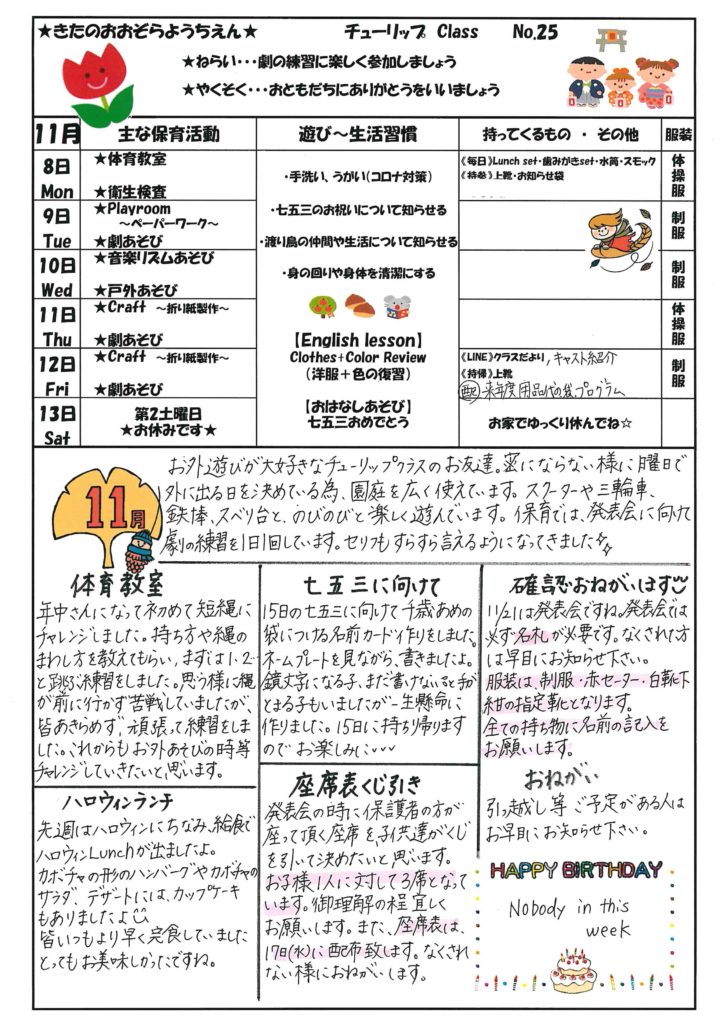 ★きたのおおぞらようちえん★ チューリップ Class No.25
★ねらい・・・劇の練習に楽しく参加しましょう
★やくそく・・・おともだちにありがとうをいいましょう
11月 主な保育活動 遊び～生活習慣 持ってくるもの ・ その他 服装
8日 Mon
★体育教室
★衛生検査
・手洗い、うがい(コロナ対策)
《毎日》Lunch set・歯みがきset・水筒・スモック
《持参》上靴・お知らせ袋
体操服
9日 Tue
★Playroom
～ペーパーワーク～
★劇あそび
・七五三のお祝いについて知らせる
・渡り鳥の仲間や生活について知らせる
制服
10日 Wed
★音楽リズムあそび
★戸外あそび
・身の回りや身体を清潔にする
制服
11日 Thu
★Craft ～折り紙製作～
★劇あそび
【English lesson】
Clothes+Color Review
(洋服＋色の復習)
体操服
12日 Fri
★Craft ～折り紙製作～
★劇あそび
《LINE》クラスだより,キャスト紹介
《持帰》上靴
配 来年度用品代の袋プログラム
制服
13日 Sat
第2土曜日
★お休みです★
【おはなしあそび】
七五三おめでとう
お家でゆっくり休んでね☆
11月
お外遊びが大好きなチューリップクラスのお友達。密にならない様に曜日で
外に出る日を決めている為、園庭を広く使えています。スクーターや三輪車、
鉄棒、スベリ台と、のびのびと楽しく遊んでいます。保育では、発表会に向けて
劇の練習を1日1回しています。セリフもすらすら言えるようになってきました
体育教室
年中さんになって初めて短縄に
チャレンジしました。持ち方や縄の
まわし方を教えてもらい,まずは1・2・・
と跳ぶ練習をしました。思う様に縄
が前に行かず苦戦していましたが、
皆あきらめず,頑張って練習をしま
した。これからもお外あそびの時等
チャレンジしていきたいと思います。
七五三に向けて
15日の七五三に向けて千歳あめの
袋につける名前カード作りをしました。
ネームプレートを見ながら、書きましたよ。
鏡文字になる子、まだ書けないと手が
とまる子もいましたが一生懸命に
作りました。15日に持ち帰ります
のでお楽しみに
確認おねがいします
11/21は発表会ですね。発表会では
必ず名札が必要です。なくされた方
は早目にお知らせ下さい。
服装は、制服・赤セーター・白靴下
紺の指定靴となります。
全ての持ち物に名前の記入を
お願いします。
おねがい
引っ越し等ご予定がある人は
お早目にお知らせ下さい。
ハロウィンランチ
先週はハロウィンにちなみ、給食で
ハロウィンLunchが出ましたよ。
カボチャの形のハンバーグやカボチャの
サラダ、デザートには、カップケーキ
もありましたよ
皆いつもより早く完食していました
とってもお美味しかったですね。
座席表くじ引き
発表会の時に保護者の方が
座って頂く座席を、子供達がくじ
を引いて決めたいと思います。
お子様1人に対して3席となって
います。御理解の程宜しく
お願いします。また、座席表は、
17日(水)に配布致します。なくされ
ない様におねがいします。
HAPPY BIRTHDAY
Nobody in this
week